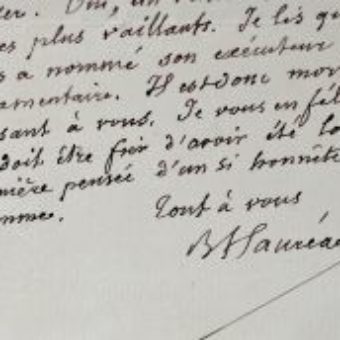 er. Oui, un
es plus vaillants. Je lis qu
s a nommé son exécuteur
amentaire. Il est donc mor
sant à vous. Je vous en fél
doit être fier d'avoir été la
nière pensée d'un si honnête
omme.
Tout à vous
B Hauréau